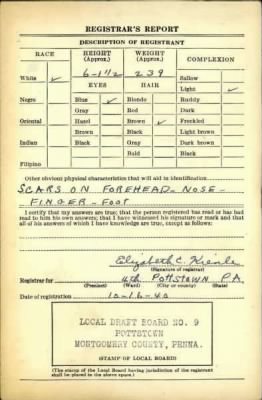 REGISTRAR'S REPORT
DESCRIPTION OF REGISTRANT
RACE HEIGHT (Approx.) WEIGHT (Approx.) COMPLEXION
White ✓ 6-1 1/2 239 Sallow
EYES HAIR Light ✓
Negro Blue ✓ Blonde Ruddy
Gray Red Dark
Oriental Hazel Brown ✓ Freckled
Brown Black Light brown
Indian Black Gray Dark brown
Bald Black
Filipino
Other obvious physical characteristics that will aid in identification
SCARS ON FOREHEAD - NOSE -
FINGER - FOOT
I certify that my answers are true; that the person registered has read or has had
read to him his own answers; that I have witnessed his signature or mark and that
all of his answers of which I have knowledge are true, except as follows:
Elizabeth C.
(Signature of registrar)
Registrar for 4th POTTSTOWN PA.
(Precinct) (Ward) (City or county) (State)
Date of registration 10-16-40
LOCAL DRAFT BOARD NO. 9
POTTSTOWN
MONTGOMERY COUNTY, PENNA.
(STAMP OF LOCAL BOARD)
(The stamp of the Local Board having jurisdiction of the registrant
shall be placed in the above space.)